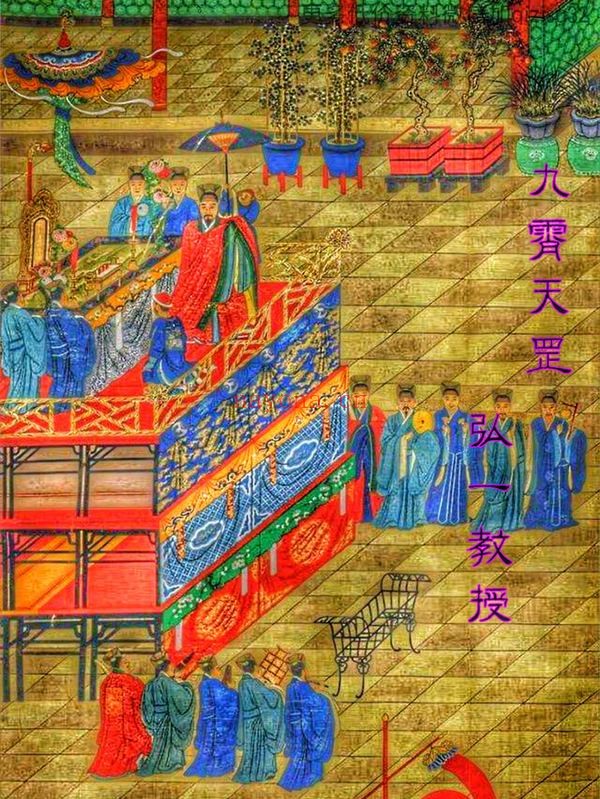 九霄天罡
弘一教授